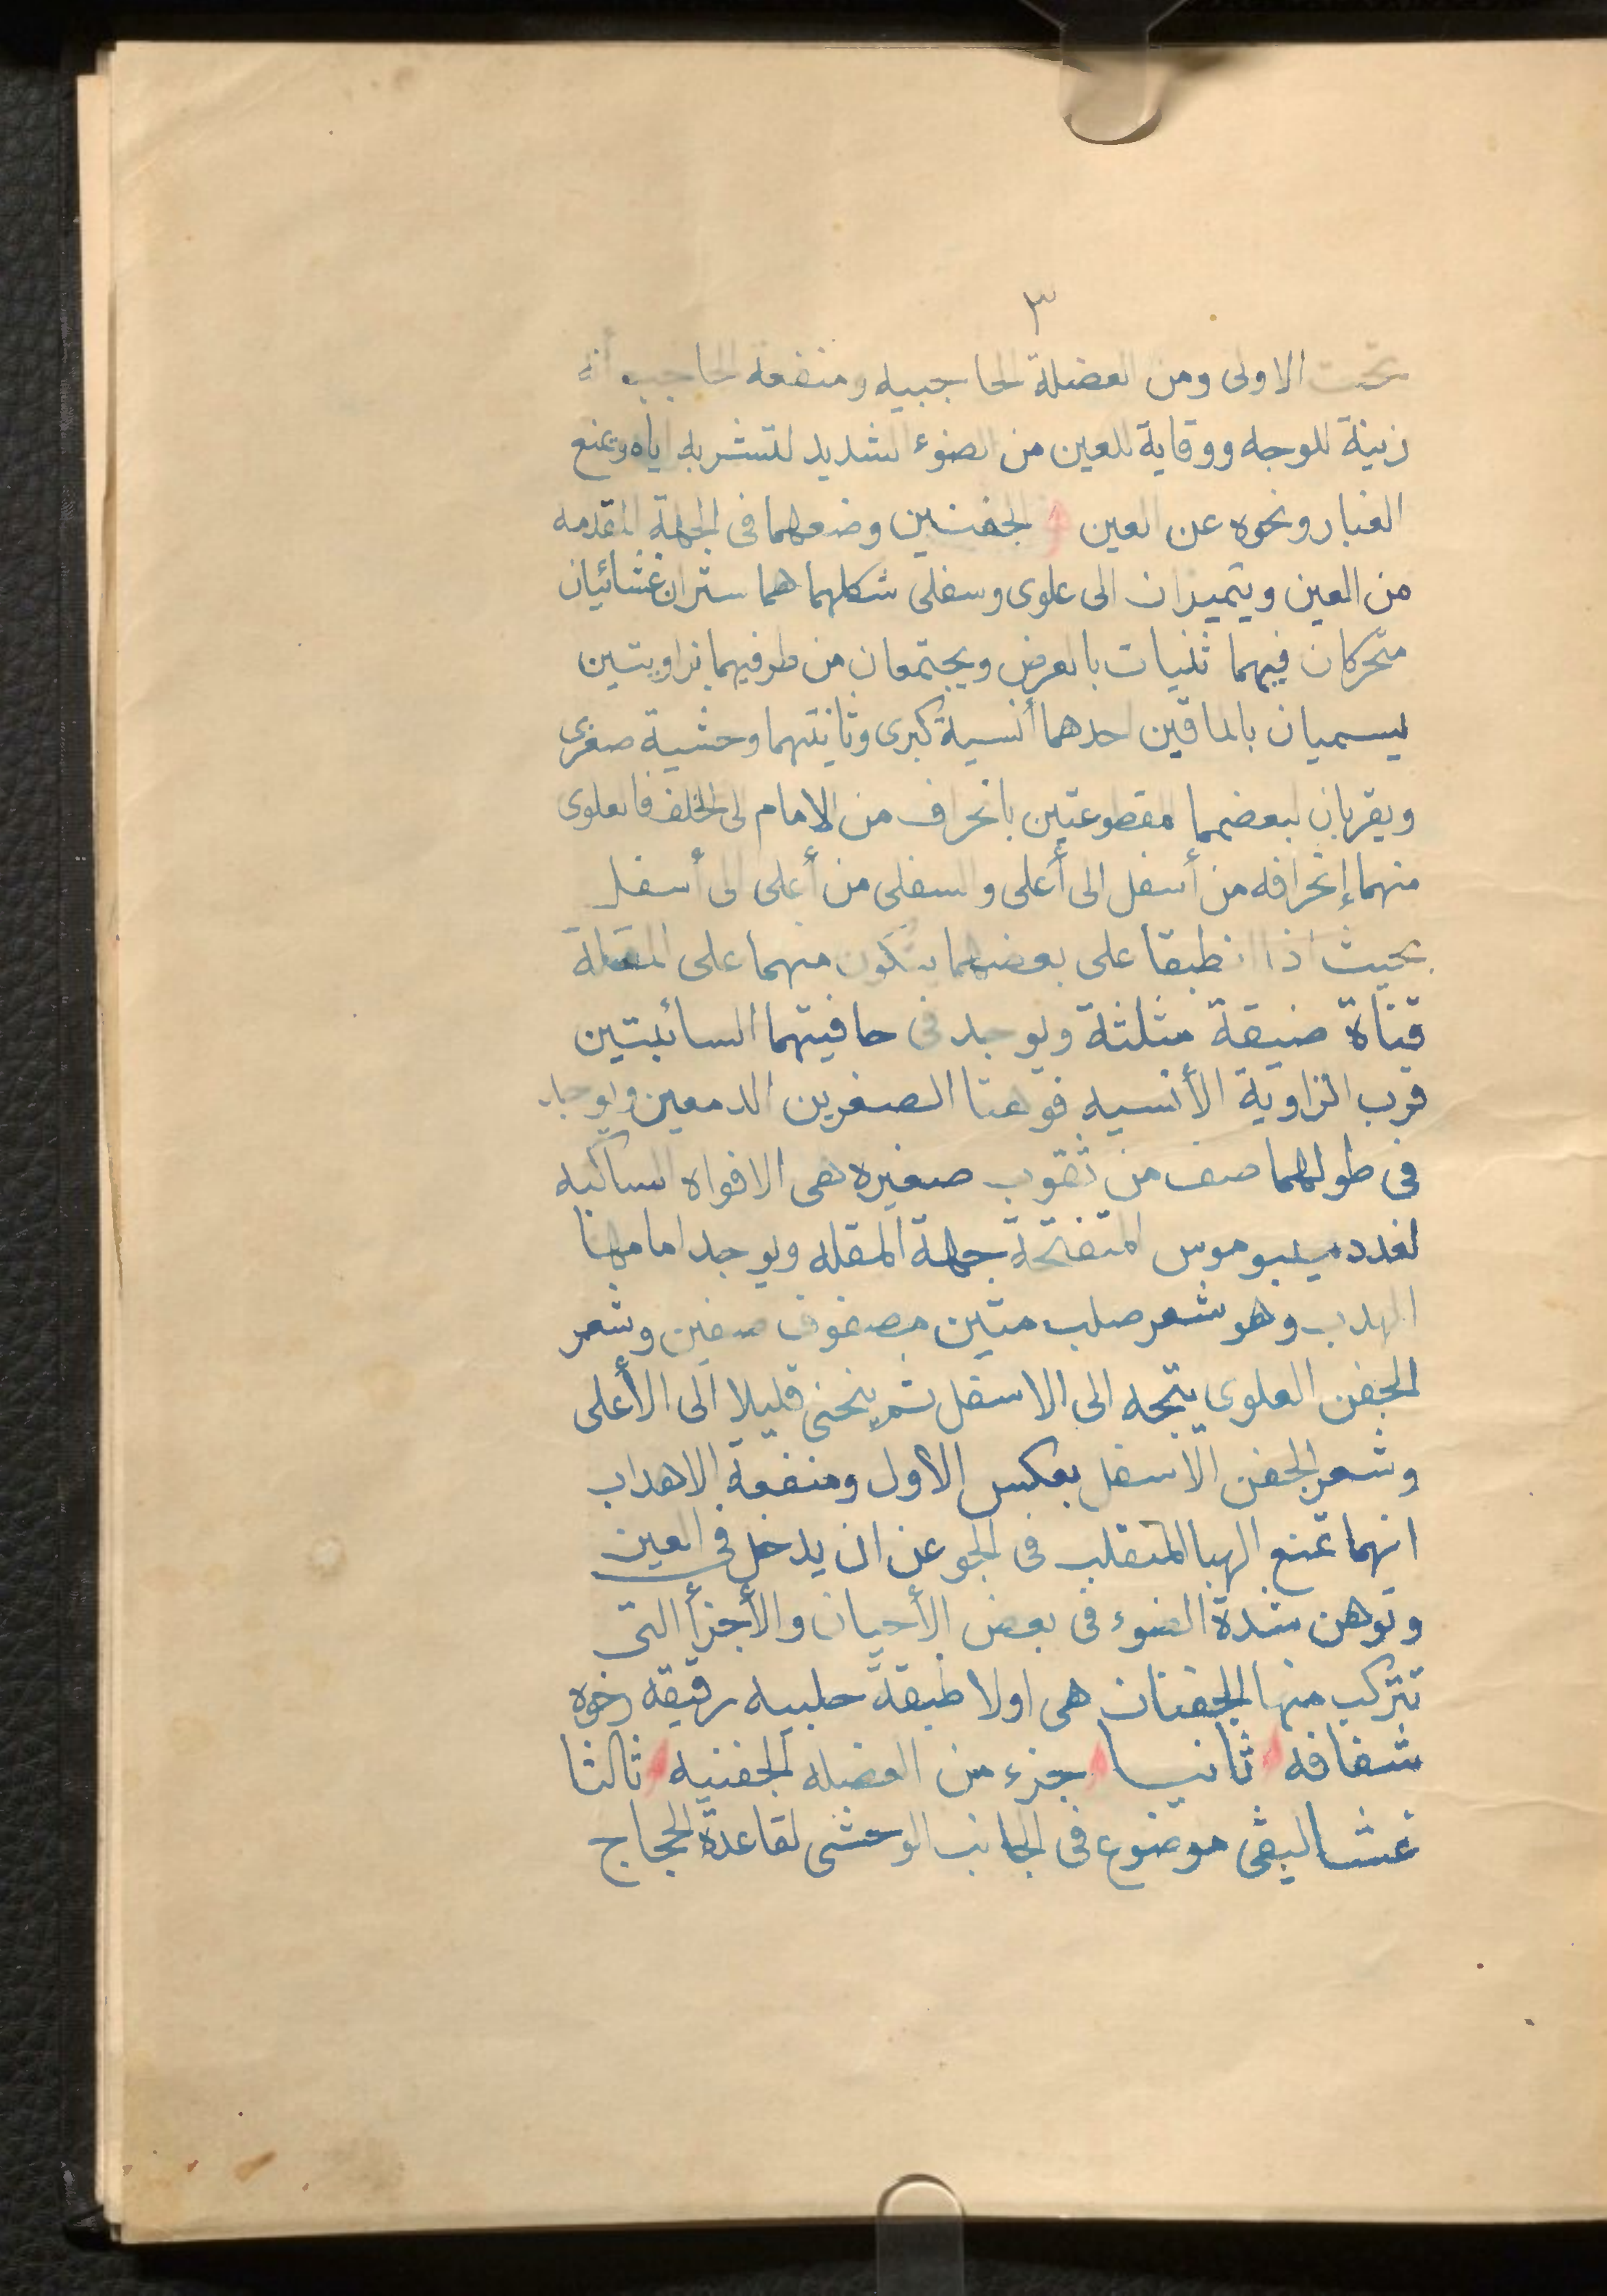 ٣
تحت الاولى ومن العضلة الحاجبيه ومنفعه الحاجب أنه
زينة للوجه ووقاية للعين من الضوء الشديد لتشربه اياه وتمنع
الغبار ونحوه عن العين الجفنين وضعهما فى الجهة المقدمه
من العين ويتميزان الى علوى وسفلى شكلهما هما ستران غشائيان
متحركان فيهما ثنيات بالعرض ويجتمعان من طرفيهما بزاويتين
يسميان بالماقين احدهما أنسية كبرى وثانيتهما وحشية صغرى
ويقربان لبعضهما مقطوعتين بانحراف من الامام الى الخلف فالعلوى
منهما إنحرافه من أسفل الى أعلى والسفلى من أعلى الى أسفل
بحيث اذا انطبقا على بعضهما يتكون منهما على المقلة
قناة ضيقة مثلثة ويوجد فى حافيتهما السائبتين
قرب الزاوية الأنسيه فوهتا الصغرين الدمعين ويوجد
فى طولهما صف من ثقوب صغيره هى الافواه السالكيه
لغدد ميبوموس المتفتحة جهة المقله ويوجد امامها
الهدب وهو شعر صلب متين مصفوف صفين وشعر
الجفن العلوى يتجه الى الاسفل ثم ينحنى قليلا الى الأعلى
وشعر الجفن الاسفل بعكس الاول ومنفعة الاهداب
انهما تمنع الهبا المتقلب فى الجو عن ان يدخل فى العين
وتوهن شدة الضوء فى بعض الأحيان والأجزأ التى
تتركب منها الجفنان هى اولا طبقة حلبيه رقيقه رخوه
شفافه ثانيا جزء من العضله الجفنيه ثالثا
غشا ليفى موضوع فى الجانب الوحشى لقاعدة الحجاج